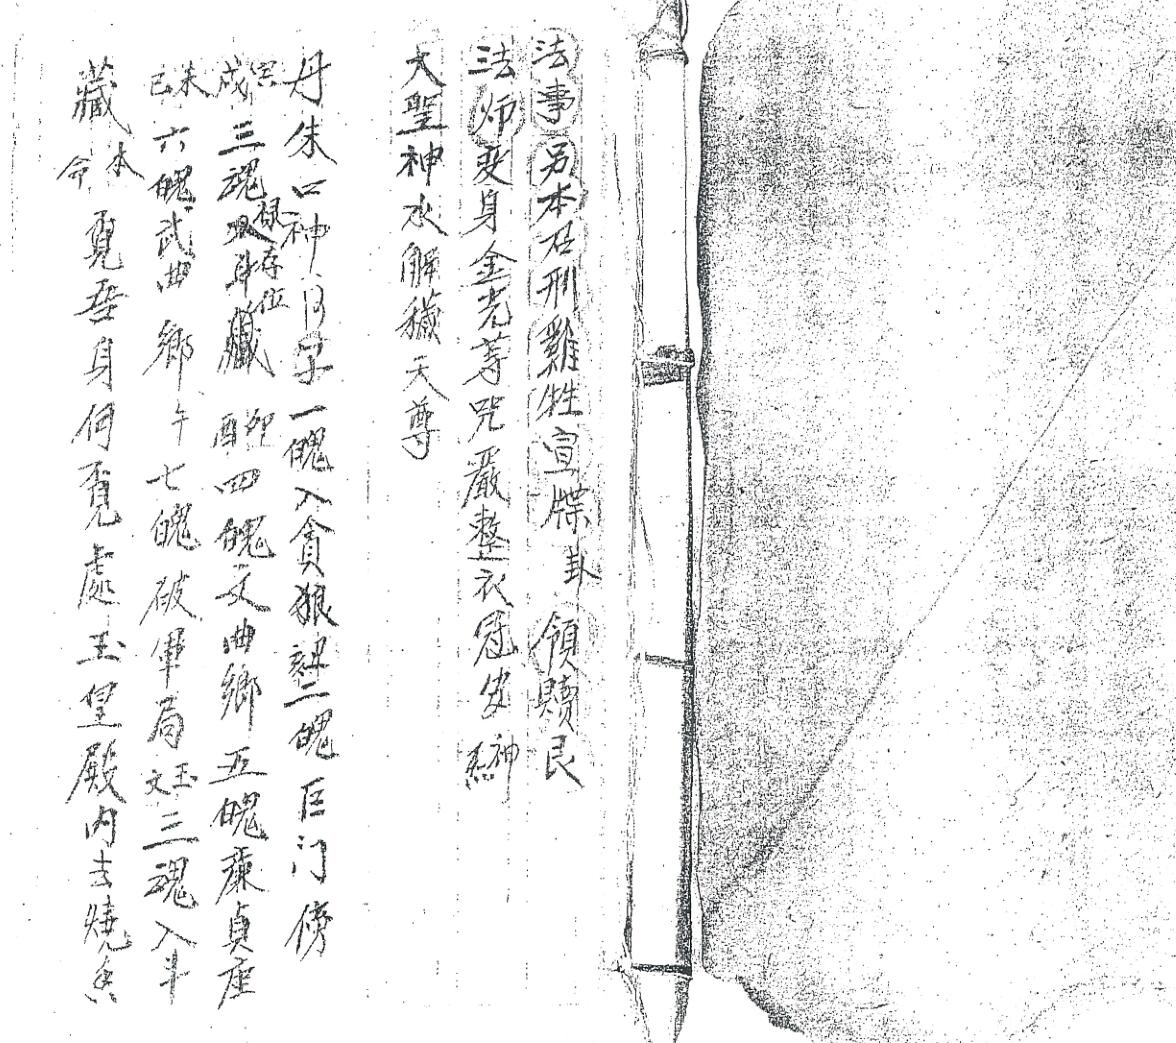 法事另本召刑雞牲宣牒卦領贖艮
法师变身金光等咒嚴整衣冠发神
大聖神水解穢天尊
丹朱口神子一魄入貪狼二魄巨门傍
戍亥三魂身藏祿存位酉卯四魄文曲鄉五魄廉貞座
巳未六魄武曲鄉午七魄破軍局玉文三魂入斗
藏本命覓吾身何覓處玉皇殿内去燒香